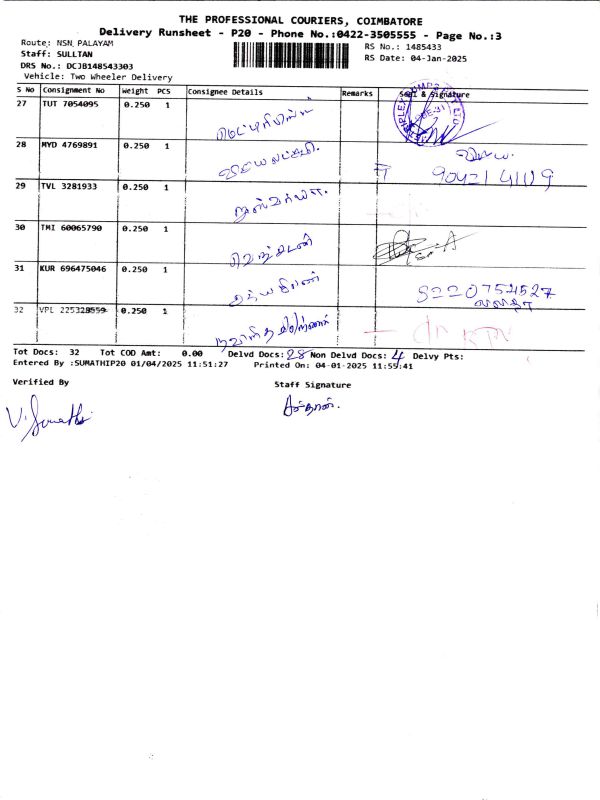 THE PROFESSIONAL COURIERS, COIMBATORE
Delivery Runsheet - P20 - Phone No.:0422-3505555 - Page No.:3
Route: NSN_PALAYAM
Staff: SULLTAN
DRS No.: DCJB148543303
Vehicle: Two Wheeler Delivery
RS No.: 1485433
RS Date: 04-Jan-2025
S No Consignment No Weight PCS Consignee Details Remarks Seal & Signature
27 TUT 7054095 0.250 1
28 MYD 4769891 0.250 1 விஜயலட்சுமி.
29 TVL 3281933 0.250 1
30 TMI 60065790 0.250 1 வெங்கடன்
31 KUR 696475046 0.250 1 சத்யகிரண்
8220754527
லலதா
32 VPL 225328559 0.250 1
Tot Docs: 32 Tot COD Amt: 0.00 Delvd Docs: 28 Non Delvd Docs: 4 Delvy Pts:
Entered By :SUMATHIP20 01/04/2025 11:51:27 Printed On: 04-01-2025 11:55:41
Verified By Staff Signature
V. Sumathi